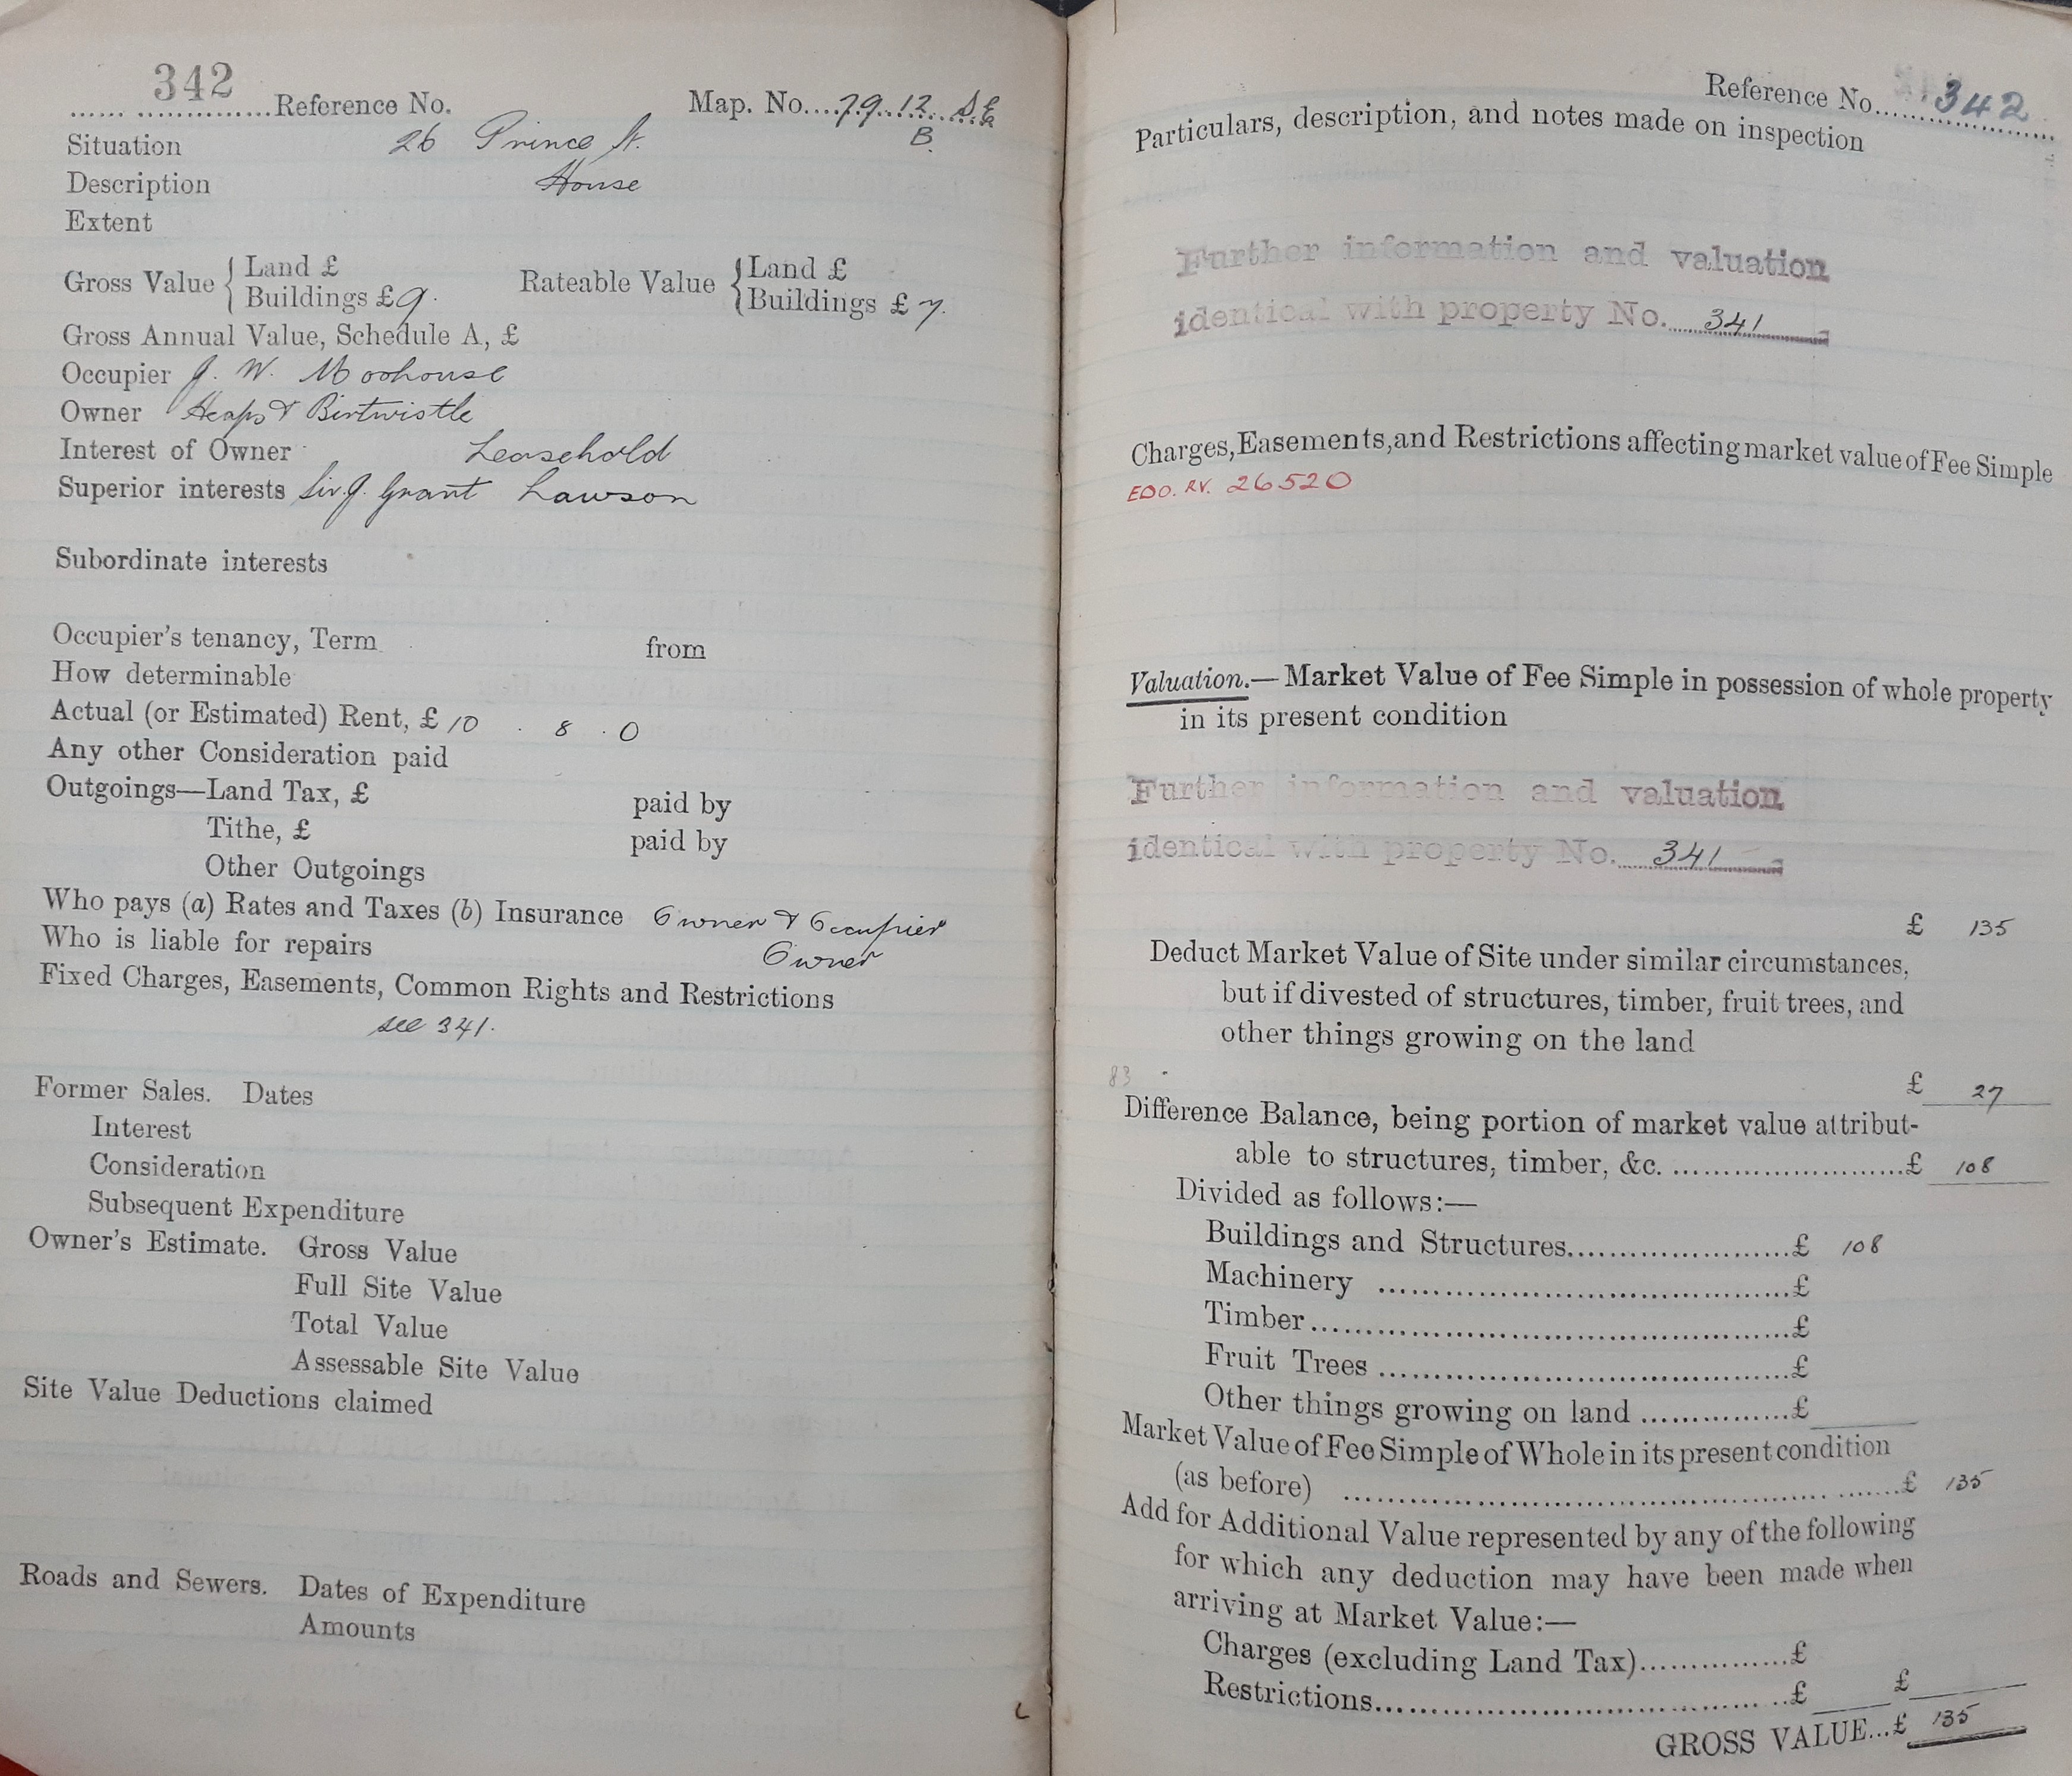 342
...... ..............Reference No. Map. No....79.12. S.E
B.
Situation 26 Prince St.
Description House
Extent
Gross Value { Land £ Rateable Value { Land £
Buildings £ 9. Buildings £ 7.
Gross Annual Value, Schedule A, £
Occupier J. W. Moohouse
Owner Heaps & Birtwistle
Interest of Owner Leasehold
Superior interests Sir J. Grant Lawson
Subordinate interests
Occupier's tenancy, Term from
How determinable
Actual (or Estimated) Rent, £ 10 . 8 . 0
Any other Consideration paid
Outgoings—Land Tax, £ paid by
Tithe, £ paid by
Other Outgoings
Who pays (a) Rates and Taxes (b) Insurance Owner & Occupier
Who is liable for repairs Owner
Fixed Charges, Easements, Common Rights and Restrictions
see 341.
Former Sales. Dates
Interest
Consideration
Subsequent Expenditure
Owner's Estimate. Gross Value
Full Site Value
Total Value
Assessable Site Value
Site Value Deductions claimed
Roads and Sewers. Dates of Expenditure
Amounts
Reference No. 342
Particulars, description, and notes made on inspection
Further information and valuation
identical with property No. 341
Charges, Easements, and Restrictions affecting market value of Fee Simple
EDO. RV. 26520
Valuation.—Market Value of Fee Simple in possession of whole property
in its present condition
Further information and valuation
identical with property No. 341
£ 135
Deduct Market Value of Site under similar circumstances,
but if divested of structures, timber, fruit trees, and
other things growing on the land
83 £ 27
Difference Balance, being portion of market value attribut-
able to structures, timber, &c. ........................£ 108
Divided as follows:—
Buildings and Structures......................£ 108
Machinery ........................................£
Timber..............................................£
Fruit Trees ........................................£
Other things growing on land ...............£
Market Value of Fee Simple of Whole in its present condition
(as before) ......................................................£ 135
Add for Additional Value represented by any of the following
for which any deduction may have been made when
arriving at Market Value:—
Charges (excluding Land Tax)...............£
Restrictions........................................£ £
GROSS VALUE...£ 135